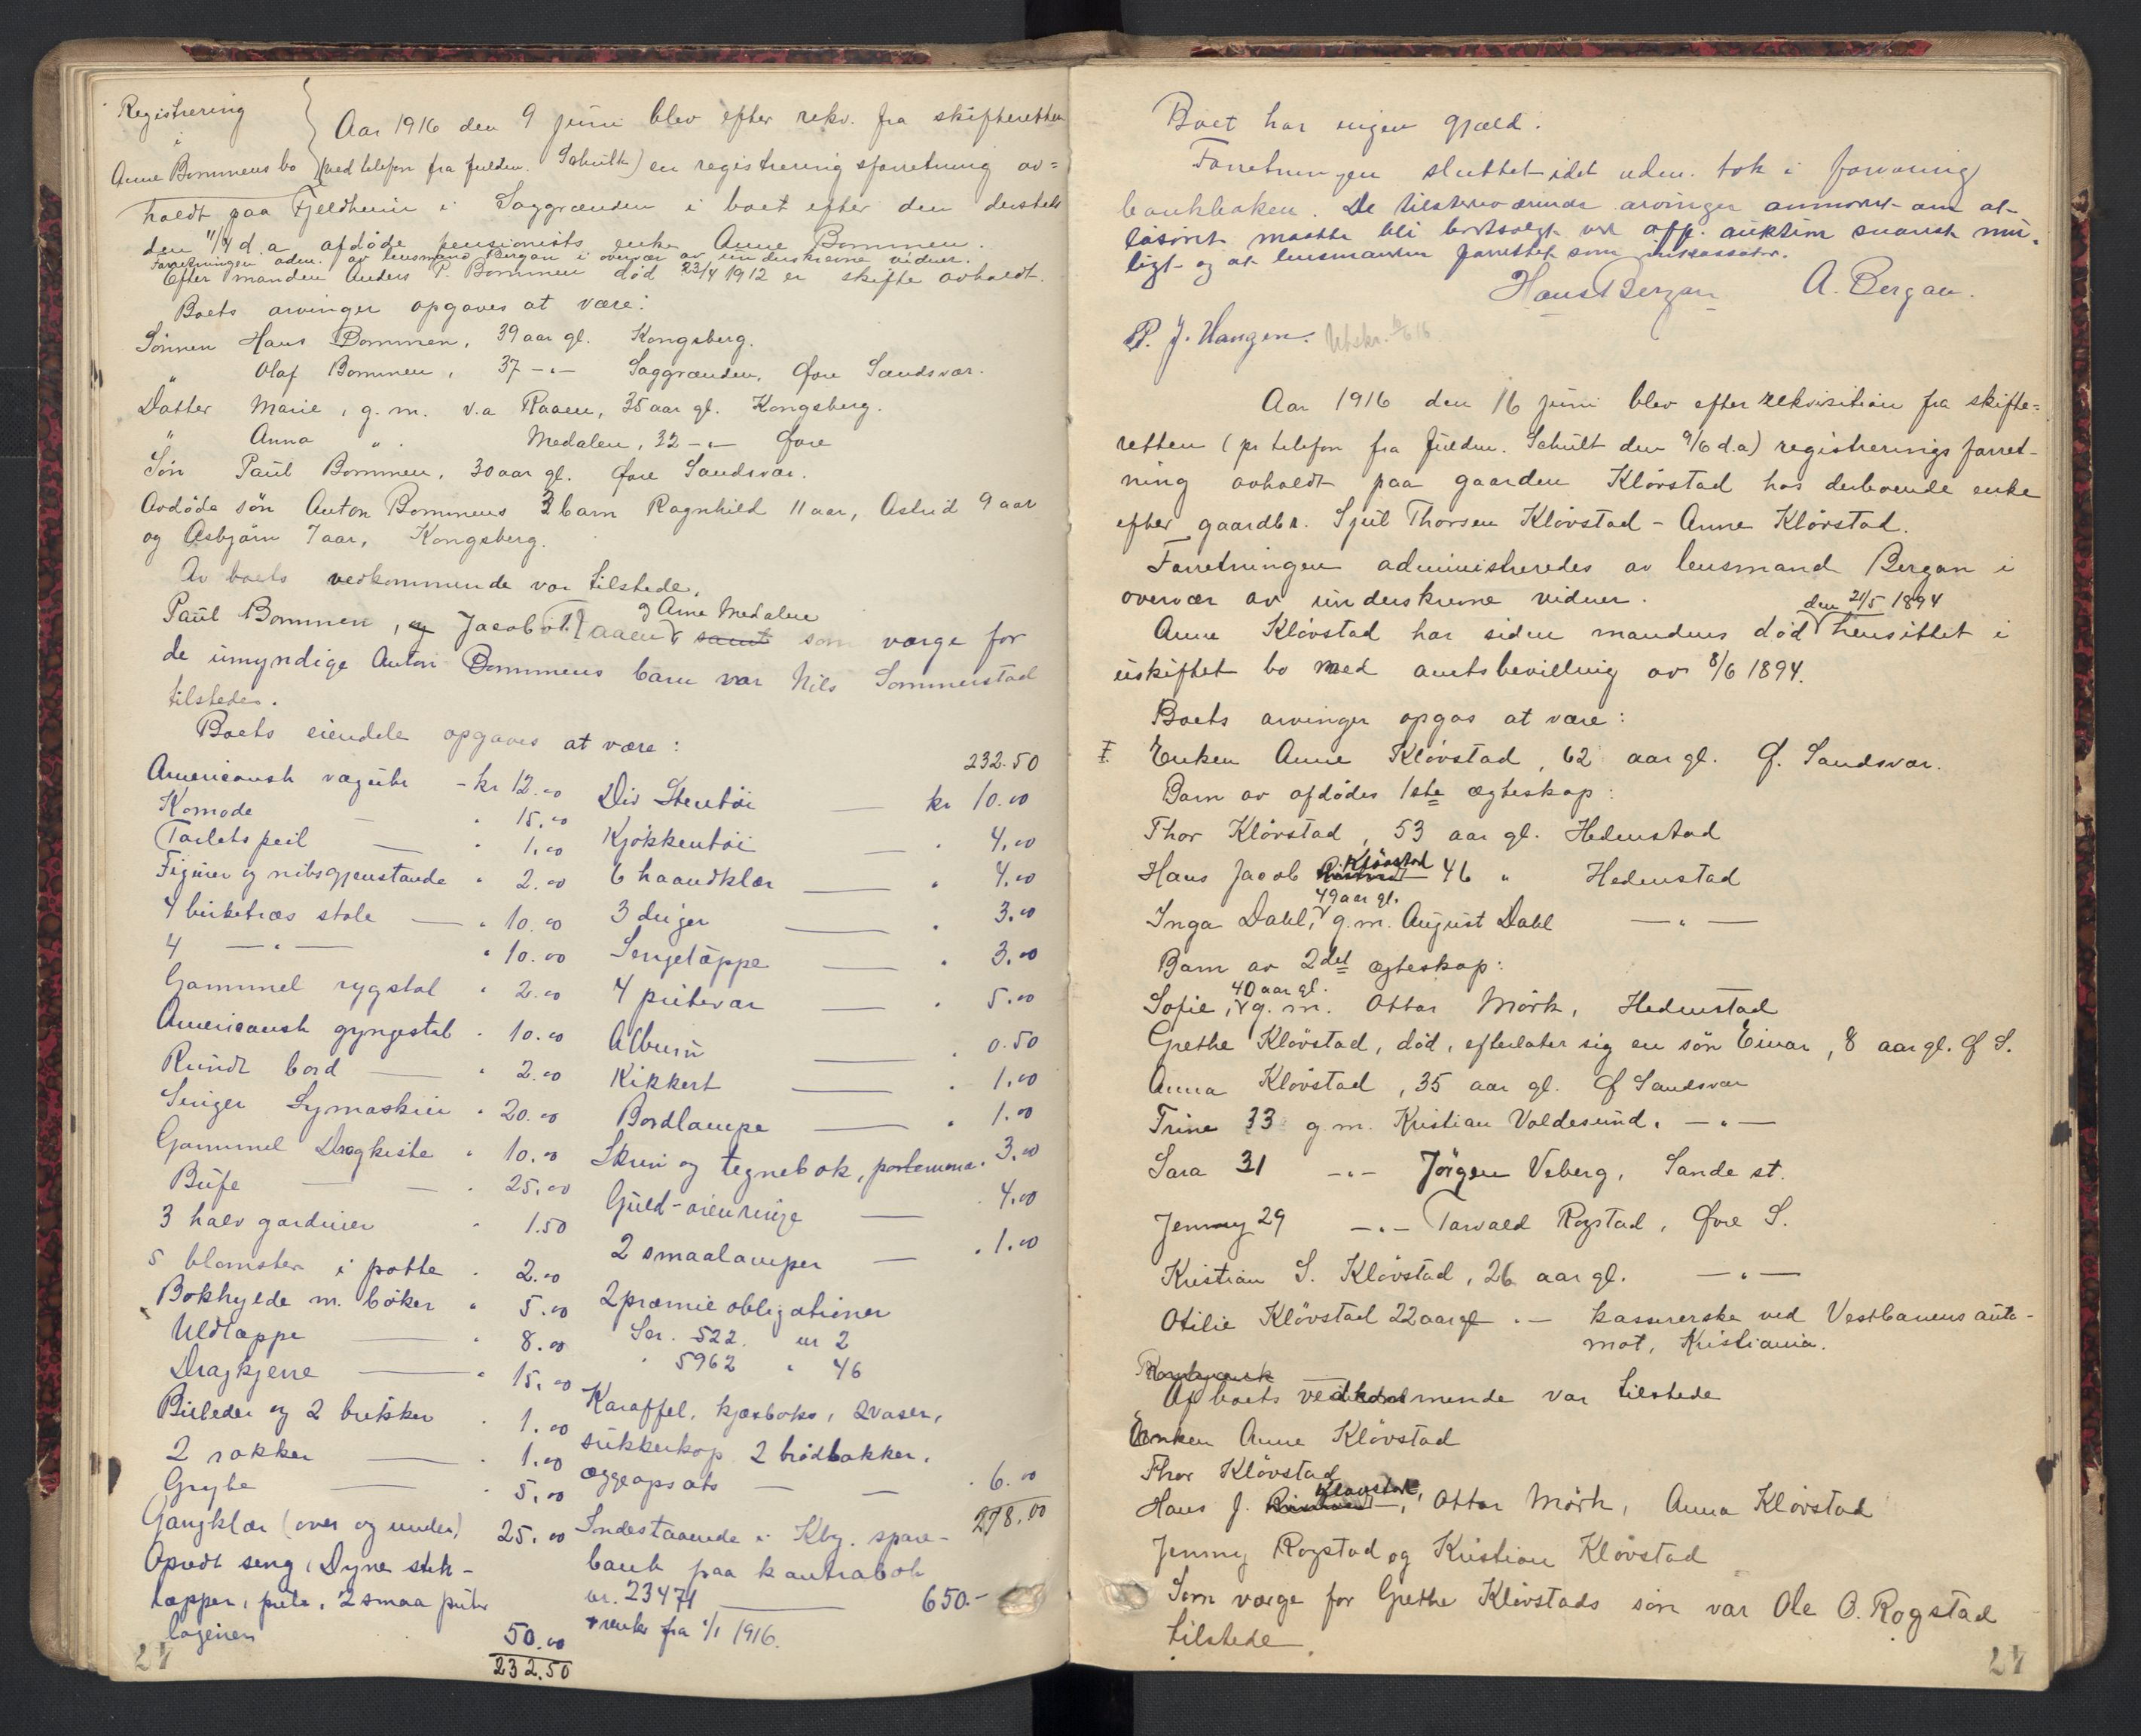 Registrering
i
Anne Bommens bo
Aar 1916 den 9 juni blev efter rekv. fra skifteretten
(ved telefon fra fuldm. Schult) en registrering sforretning av=
holdt paa Fjeldheim i Saggrænden i boet efter den dersteds
den 11/4 d.a afdöde pensionists enke Anne Bommen.
Forretningen adm. av lensmand Bergan i overvær av underskrevne vidner.
Efter manden Anders P. Bommen död 23/4 1912 er skifte avholdt.
Boets arvinger opgaves at være:
Sönnen Hans Bommen, 39 aar gl. Kongsberg.
" Olaf Bommen, 37 -"- Saggrænden, Övre Sandsvær.
Datter Marie, g.m. O.a Raaen, 35 aar gl. Kongsberg.
" Anna " . Medalen, 32 -"- Övre
Sön Paul Bommen, 30 aar gl. Övre Sandsvær.
Avdöde sön Anton Bommens 3 barn Ragnhild 11 aar, Astrid 9 aar
og Asbjörn 7 aar, Kongsberg.
Av boets vedkommende var tilstede,
Paul Bommen, og Jacob Raaen og Arne Medalen samt som værge for
de umyndige Anton Bommens barn var Nils Sommerstad
tilstede.
Boets eiendele opgaves at være:
Americansk væguhr - kr 12.00
Komode — " 15.00
Toiletspeil — " 1.00
Figurer og nibsgjenstande " 2.00
4 birketræs stole — " 10.00
4 —"— " 10.00
Gammel rygstol " 2.00
Americansk gyngestol " 10.00
Rundt bord — " 2.00
Singer Symaskin " 20.00
Gammel Dragkiste " 10.00
Büfe — — " 25.00
3 halv gardiner " 1.50
5 blomster i potte " 2.00
Bokhylde m. böker " 5.00
Uldtæppe — " 8.00
Dragkjerre — " 15.00
Billeder og 2 brikker " 1.00
2 rokker — " 1.00
Gryte — " 5.00
Gangklær (over og under) 25.00
Opredt seng, Dyne stik-
tæpper, pute, 2 smaa puter
lagener 50.00
232.50
232.50
Div Stentöi — kr 10.00
Kjökkentöi — " 4.00
6 haandklær — " 4.00
3 duger — " 3.00
Sengetæppe — " 3.00
4 putevar — " 5.00
Album — " 0.50
Kikkert — " 1.00
Bordlampe — " 1.00
Skrin og tegnebok, portemone. 3.00
Guld-örenringe — " 4.00
2 smaalamper — " 1.00
2 præmieobligationer
Ser. 522. nr 2
" 5962 " 46
Karaffel, kjæsboks, 2 vaser,
sukkerkop 2 brödbakker,
æggeopsats — — " 6.00
278.00
Indestaaende i Kbg. spare-
bank paa kontrabok
nr. 23471 — 650.-
+ renter fra 1/1 1916.
27
Boet har ingen gjæld.
Forretningen sluttet idet adm. tok i forvaring
bankboken. De tilstedeværende arvinger anmodet om at
lösöret maatte bli bortsolgt ved off. auktion snarest mu-
ligt og at lensmanden forrettet som inkassator.
Hans Bergan A. Bergan.
P. J. Haugen. Utskr. 616
Aar 1916 den 16 juni blev efter rekvisition fra skifte=
retten (pr telefon fra fuldm. Schult den 9/6 d.a) registrerings forret-
ning avholdt paa gaarden Klövstad hos derboende enke
efter gaardbr. Sjul Thorsen Klövstad - Anne Klövstad.
Forretningen administreredes av lensmand Bergan i
overvær av underskrevne vidner.
Anne Klövstad har siden mandens död den 21/5 1894 hensittet i
uskiftet bo med amtsbevilling av 8/6 1894.
Boets arvinger opgas at være:
I. Enken Anne Klövstad, 62 aar gl. Ö. Sandsvær.
Barn av afdödes 1ste ægteskap:
Thor Klövstad, 53 aar gl. Hedenstad
Hans Jacob Klövstad 46 " Hedenstad
Inga Dahl, 49 aar gl. g.m. August Dahl —"—
Barn av 2det ægteskap:
Sofie, 40 aar gl. g.m. Ottar Mörk, Hedenstad
Grethe Klövstad, död, efterlater sig en sön Einar, 8 aar gl. Ö S.
Anna Klövstad, 35 aar gl. Ö Sandsvær
Trine 33 g.m. Kristian Valdesund. —"—
Sara 31 -"- Jörgen Veberg, Sande st.
Jenny 29 —"— Torvald Rogstad, Övre S.
Kristian S. Klövstad, 26 aar gl. —"—
Otilie Klövstad 22 aar gl -"— kassererske ved Vestbanens auto-
mat, Kristiania.
Af boets vedkommende var tilstede
Enken Anne Klövstad
Thor Klövstad
Hans J. Klövstad, Ottar Mörk, Anna Klövstad
Jenny Rogstad og Kristian Klövstad
Som værge for Grethe Klövstads sön var Ole O. Rogstad
tilstede.
27